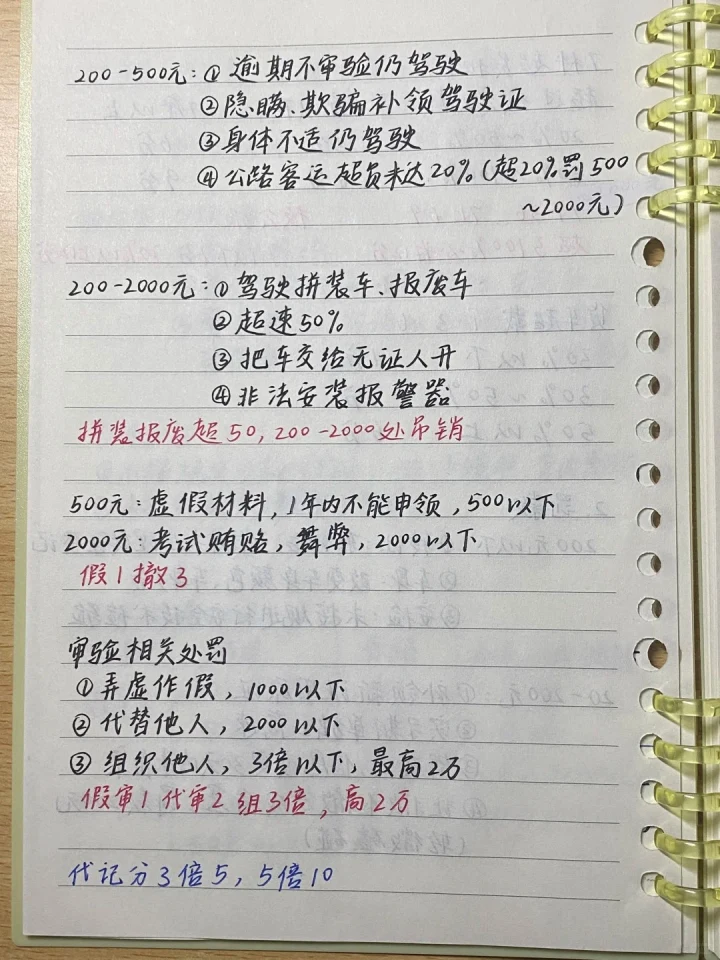 200-500元:①逾期不审验仍驾驶
②隐瞒、欺骗补领驾驶证
③身体不适仍驾驶
④公路客运超员未达20%(超20%罚500
~2000元)
200-2000元:①驾驶拼装车、报废车
②超速50%
③把车交给无证人开
④非法安装报警器
拼装报废超50,200-2000处吊销
500元:虚假材料,1年内不能申领,500以下
2000元:考试贿赂,舞弊,2000以下
假1撤3
审验相关处罚
①弄虚作假,1000以下
②代替他人,2000以下
③组织他人,3倍以下,最高2万
假审1代审2组3倍,高2万
代记分3倍5,5倍10